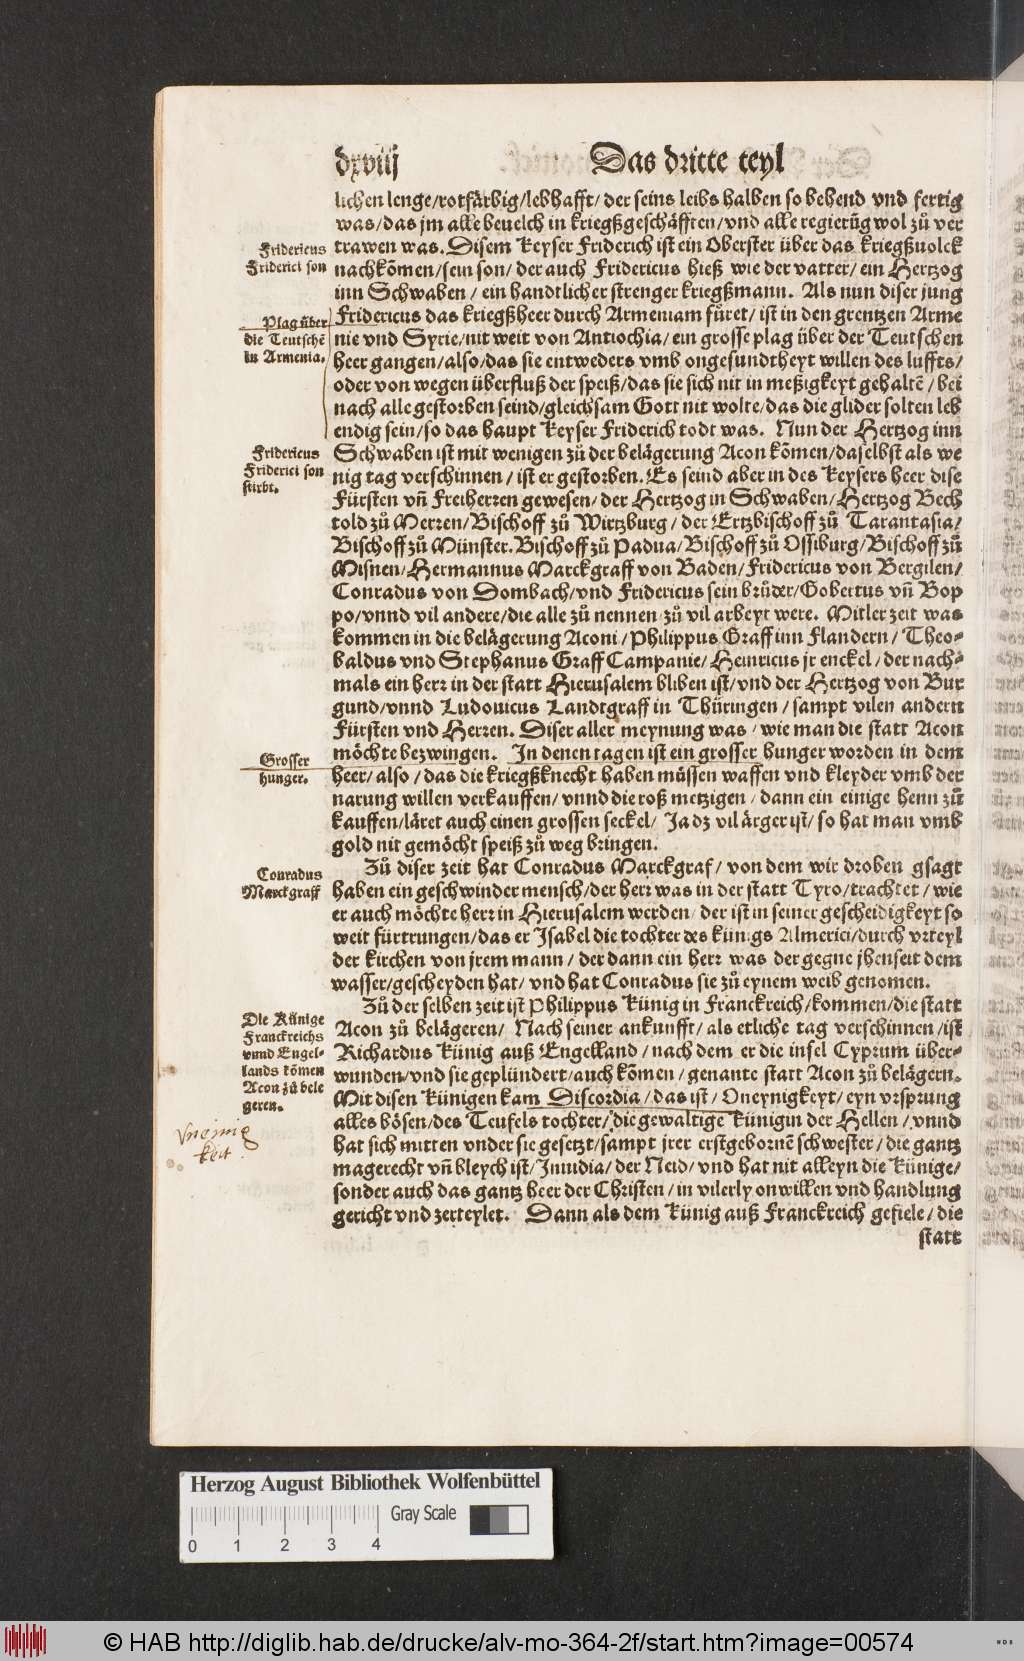 dxviij Das dritte teyl
lichen lenge/rotfärbig/lebhafft/ der seins leibs halben so behend vnd fertig
was/das jm alle beuelch in kriegßgeschäfften/vnd alle regierũg wol zů ver
trawen was. Disem Keyser Friderich ist ein Oberster über das kriegßuolck
nachkõmen/sein son/ der auch Fridericus hieß wie der vatter/ ein Hertzog
inn Schwaben / ein handtlicher strenger kriegßmann. Als nun diser jung
Fridericus das kriegßheer durch Armeniam füret/ ist in den grentzen Arme
nie vnd Syrie/nit weit von Antiochia/ein grosse plag über der Teutschen
heer gangen/also/das sie entweders vmb ongesundtheyt willen des luffts/
oder von wegen überfluß der speiß/das sie sich nit in meßigkeyt gehaltẽ/ bei
nach alle gestorben seind/gleichsam Gott nit wolte/das die glider solten leb
endig sein/so das haupt Keyser Friderich todt was. Nun der Hertzog inn
Schwaben ist mit wenigen zů der belägerung Acon kõmen/daselbst als we
nig tag verschinnen / ist er gestorben. Es seind aber in des Keysers heer dise
Fürsten vñ Freiherren gewesen/ der Hertzog in Schwaben/Hertzog Bech
told zů Merzen/Bischoff zů Wirtzburg / der Ertzbischoff zů Tarantasia/
Bischoff zů Münster. Bischoff zů Padua/Bischoff zů Ossiburg/Bischoff zů
Misnen/Hermannus Marckgraff von Baden/Fridericus von Bergilen/
Conradus von Dombach/vnd Fridericus sein brůder/Gobertus vñ Bop
po/vnnd vil andere/die alle zů nennen/zů vil arbeyt were. Mitler zeit was
kommen in die belägerung Aconi/Philippus Graff inn Flandern / Theo-
baldus vnd Stephanus Graff Campanie/Heinricus jr enckel/der nach-
mals ein herr in der statt Hierusalem bliben ist/vnd der Hertzog von Bur
gund/vnnd Ludouicus Landtgraff in Thüringen / sampt vilen andern
Fürsten vnd Herzen. Diser aller meynung was / wie man die statt Acon
möchte bezwingen. In denen tagen ist ein grosser hunger worden in dem
heer/ also / das die kriegßknecht haben müssen waffen vnd kleyder vmb der
narung willen verkauffen/vnnd die roß metzigen / dann ein einige henn zů
kauffen/läret auch einen grossen seckel/ Ja dz vil ärger ist/ so hat man vmb
gold nit gemöcht speiß zů weg bringen.
Zů diser zeit hat Conradus Marckgraf/ von dem wir droben gsagt
haben ein geschwinder mensch/der herr was in der statt Tyro/trachtet/ wie
er auch möchte herr in Hierusalem werden/ der ist in seiner gescheidigkeyt so
weit fürtrungen/das er Isabel die tochter des künigs Almerici/durch vrteyl
der kirchen von jrem mann / der dann ein herr was der gegne jhenseit dem
wasser/gescheyden hat/ vnd hat Conradus sie zů eynem weib genomen.
Zů der selben zeit ist Philippus Künig in Franckreich/kommen/die statt
Acon zů belägeren/ Nach seiner ankunfft/als etliche tag verschinnen /ist
Richardus Künig auß Engelland / nach dem er die insel Cyprum über-
wunden/vnd sie geplündert/auch kõmen / genante statt Acon zů belägern.
Mit disen Künigen kam Discordia/das ist/ Oneynigkeyt/eyn vrsprung
alles bösen/des Teufels tochter/die gewaltige Künigin der Hellen/vnnd
hat sich mitten vnder sie gesetzt/sampt jrer erstgebornẽ schwester/die gantz
magerecht vñ bleych ist/Inuidia/ der Neid/ vnd hat nit alleyn die Künige/
sonder auch das gantz heer der Christen/in vilerly onwillen vnd handlung
gericht vnd zerteylet. Dann als dem Künig auß Franckreich gefiele/die
statt
Fridericus
Friderici son
Plag über
die Teutschẽ
in Armenia.
Fridericus
Friderici son
stirbt.
Grosser
hunger.
Conradus
Marckgraff
Die Künige
Franckreichs
vnnd Engel-
lands kõmen
Acon zů bele
geren.
Vneinig
keit.
Herzog August Bibliothek Wolfenbüttel
Gray Scale
0 1 2 3 4
© HAB http://diglib.hab.de/drucke/alv-mo-364-2f/start.htm?image=00574